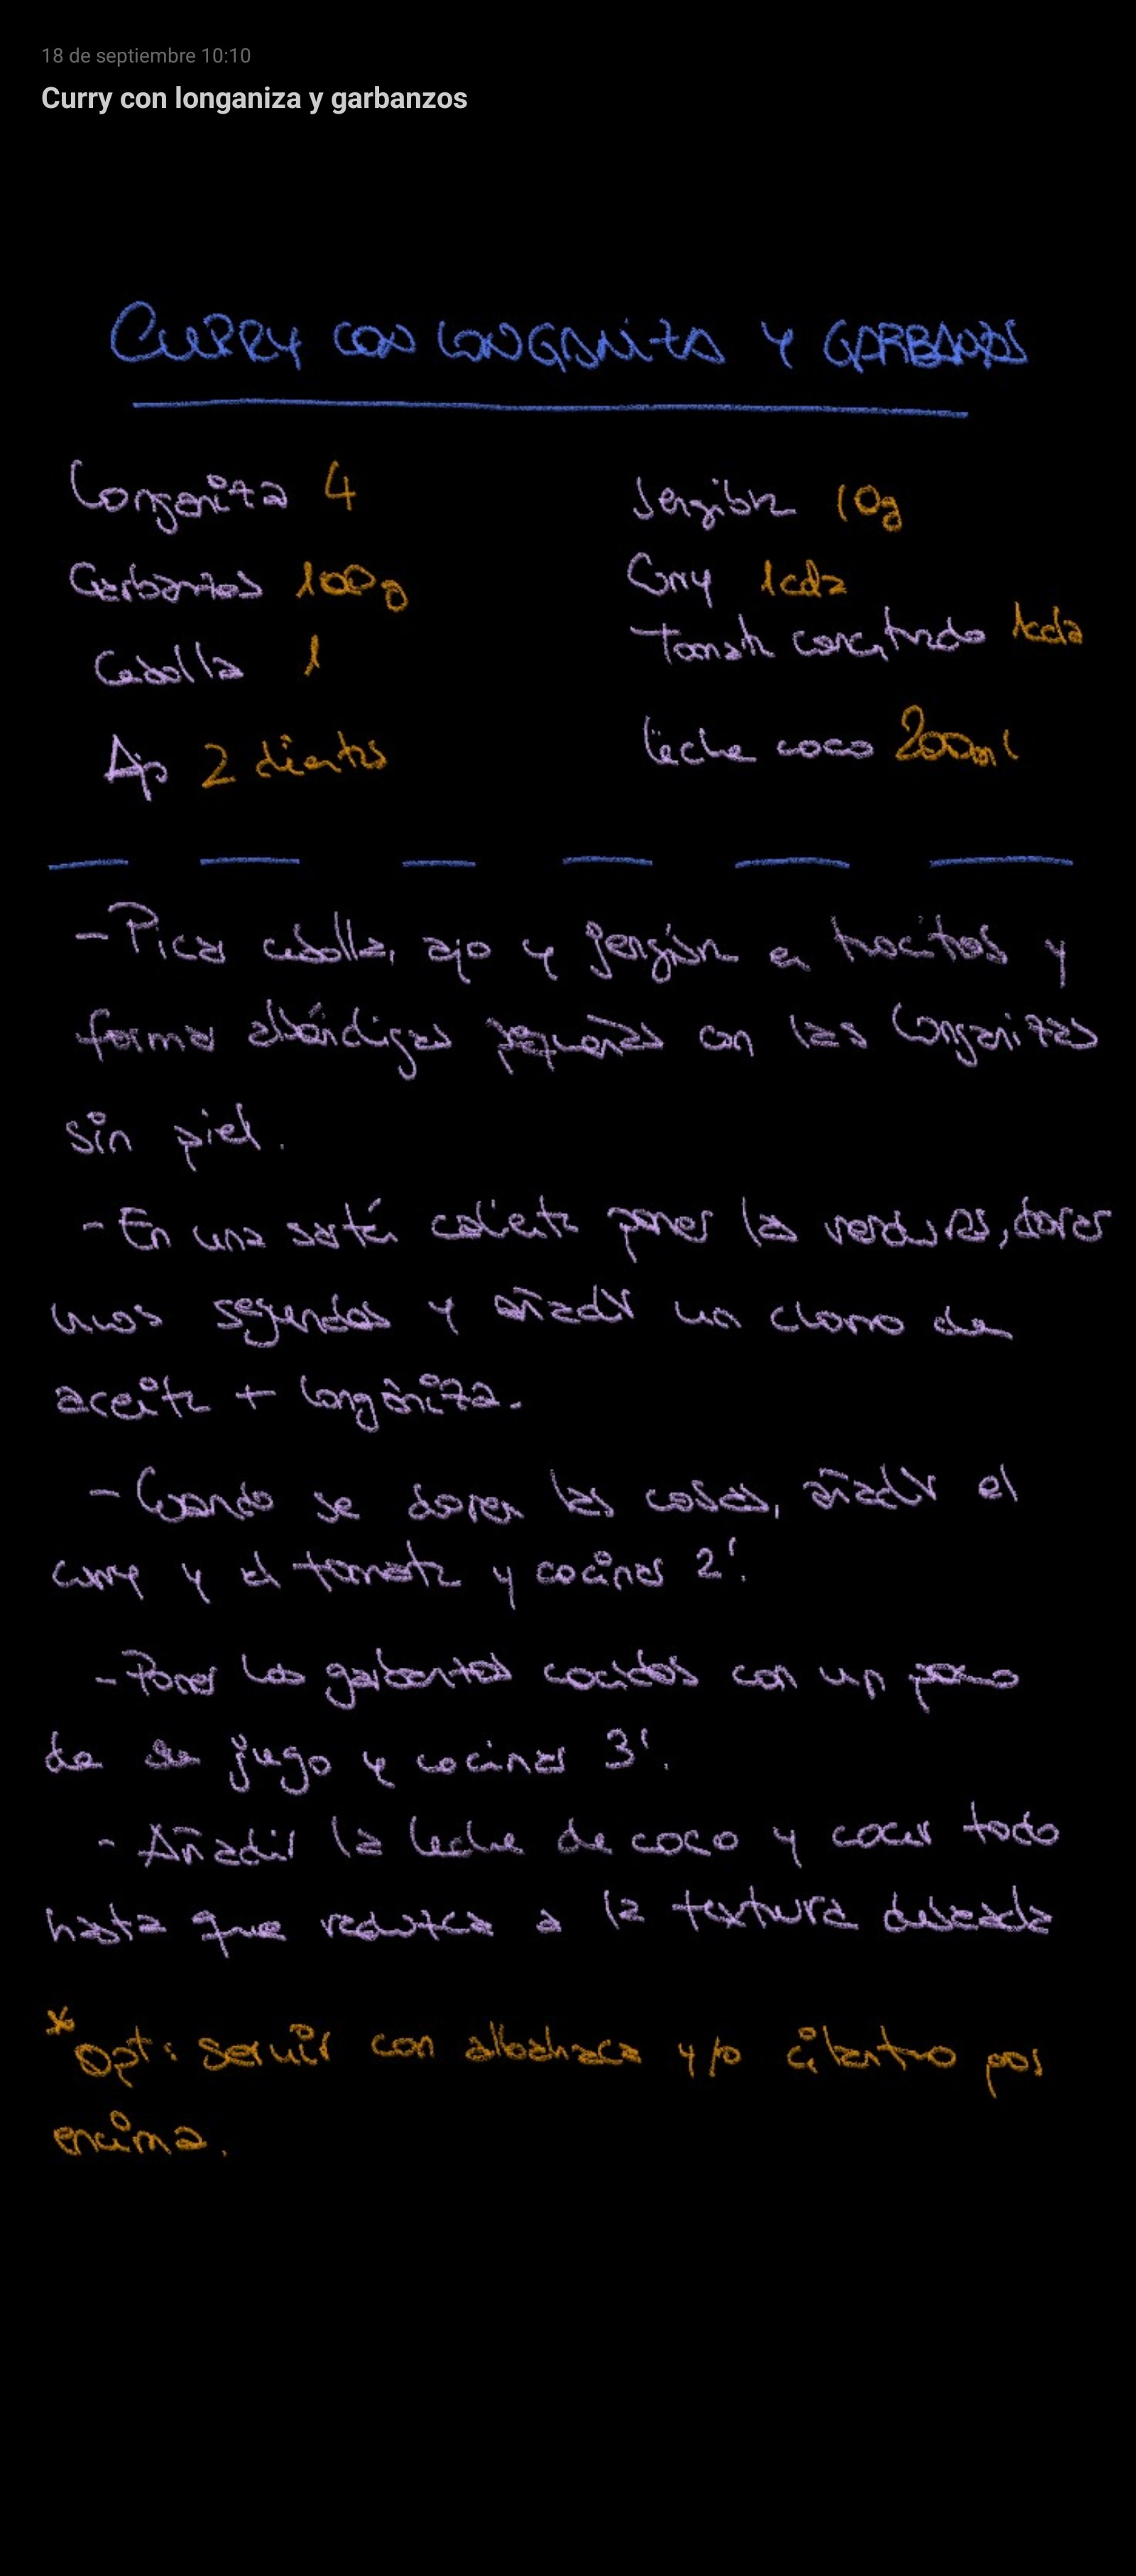 18 de septiembre 10:10
Curry con longaniza y garbanzos
CURRY CON LONGANIZA Y GARBANZOS
Longaniza 4
Jengibre 10g
Garbanzos 100g
Curry 1cda
Cebolla 1
Tomate concentrado 1cda
Ajo 2 dientes
Leche coco 200ml
- Picar cebolla, ajo y jengibre en trocitos y
formar albóndigas pequeñas con las longanizas
sin piel.
- En una sartén caliente poner las verduras, dorar
unos segundos y añadir un chorro de
aceite + longaniza.
- Cuando se doren las cosas, añadir el
curry y el tomate y cocinar 2'.
- Poner los garbanzos cocidos con un poco
de su jugo y cocinar 3'.
- Añadir la leche de coco y cocer todo
hasta que reduzca a la textura deseada
* Opt: servir con albahaca y/o cilantro por
encima.